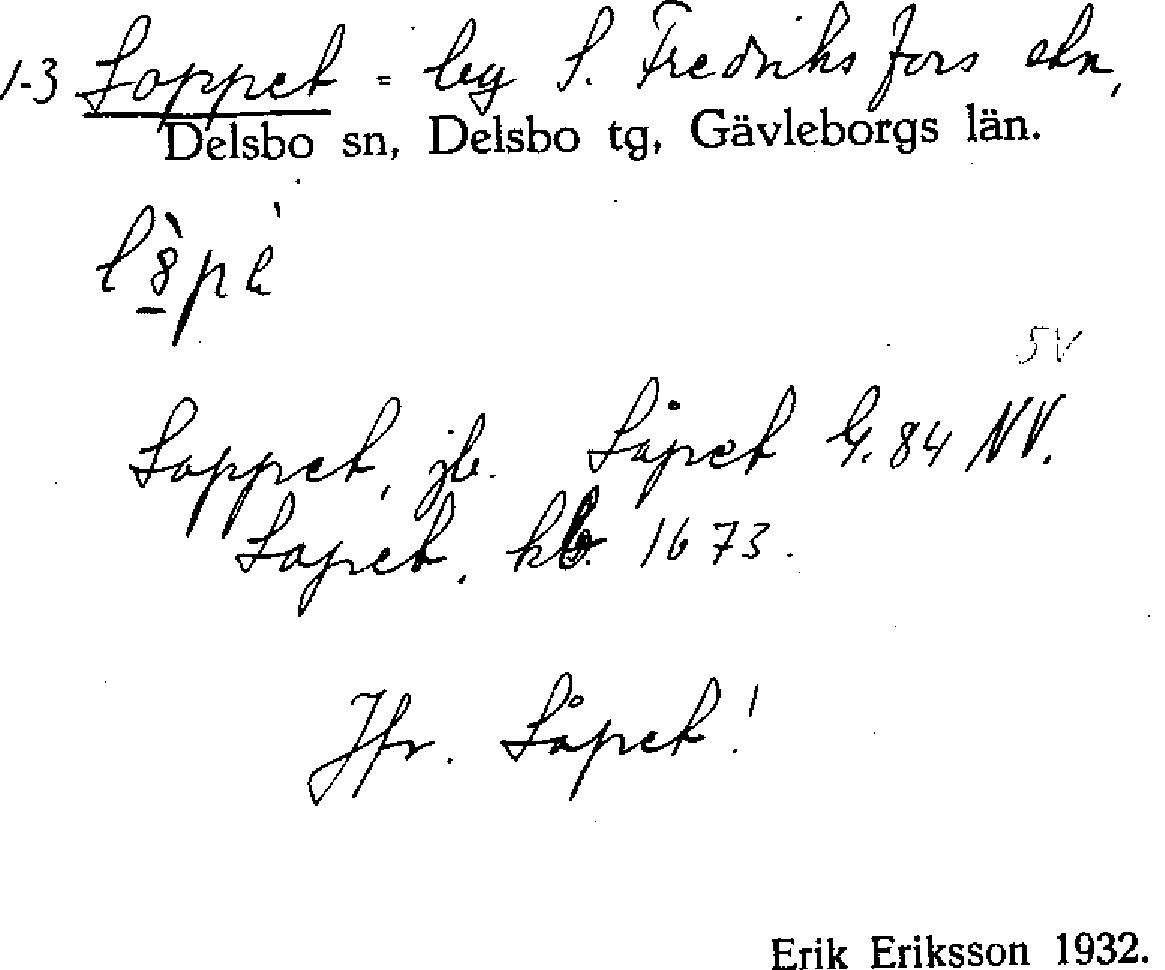 1-3 Loppet = by S. Fredriksfors stn,
Delsbo sn, Delsbo tg, Gävleborgs län.
SV
Loppet, jb. Låpet G. 84 NV.
Lapet, kb. 1673.
Jfr. Låpet!
Erik Eriksson 1932.